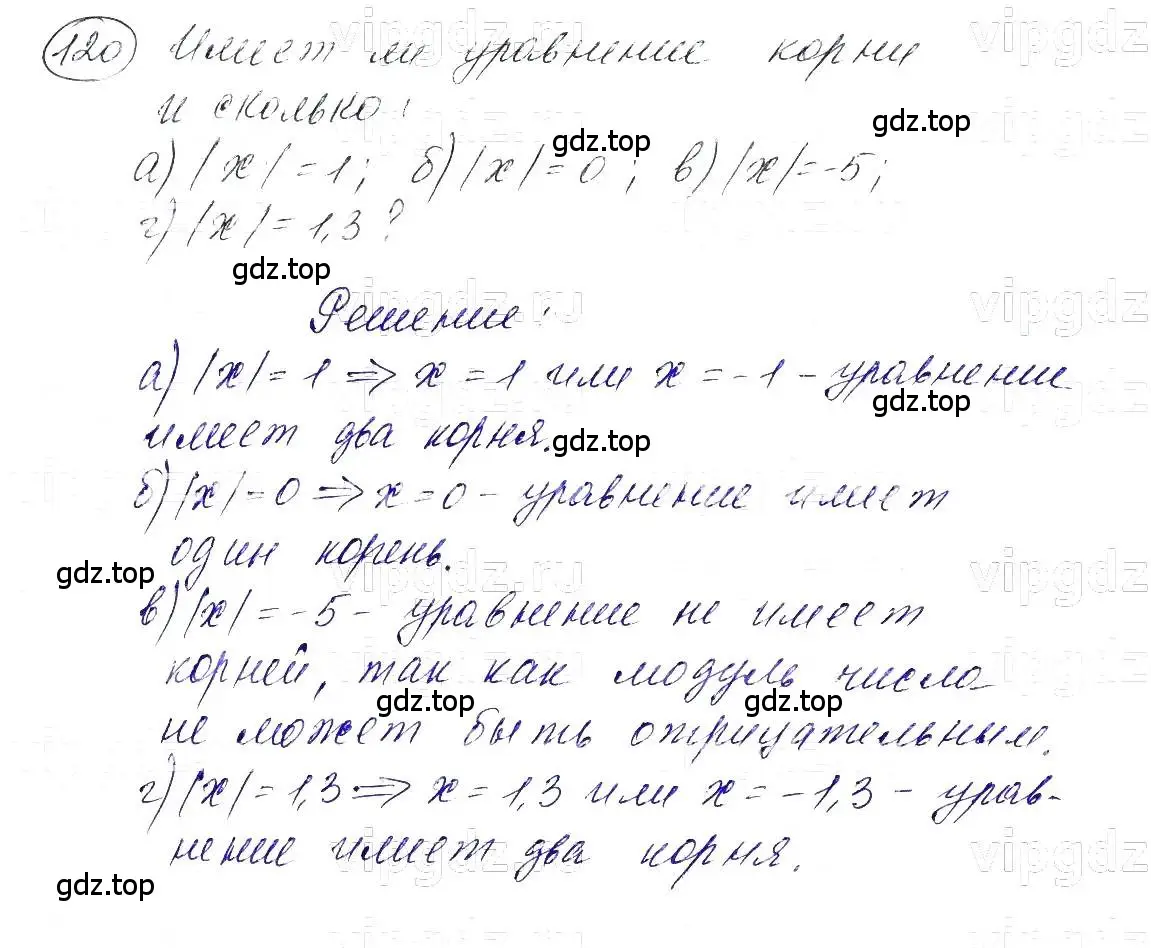 120 Имеет ли уравнение корни
и сколько:
а) |x| = 1; б) |x| = 0; в) |x| = -5;
г) |x| = 1,3?
Решение:
а) |x| = 1 ⇒ x = 1 или x = -1 - уравнение
имеет два корня.
б) |x| = 0 ⇒ x = 0 - уравнение имеет
один корень.
в) |x| = -5 - уравнение не имеет
корней, так как модуль числа
не может быть отрицательным.
г) |x| = 1,3 ⇒ x = 1,3 или x = -1,3 - урав-
нение имеет два корня.
gdz.top
gdz.top
gdz.top
gdz.top
gdz.top
gdz.top
gdz.top
gdz.top
gdz.top
gdz.top
vipgdz.ru
vipgdz
vipgdz.ru
vipgdz
vipgdz.ru
vipgdz
vipgdz.ru
vipgdz